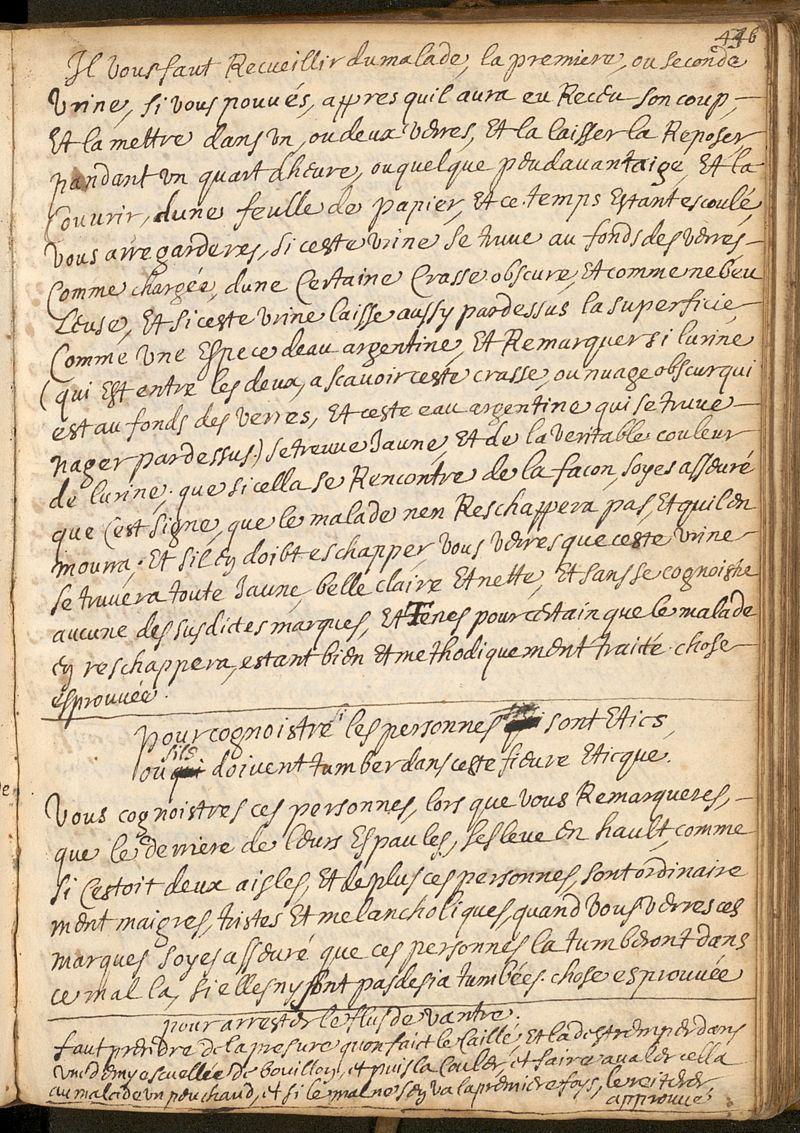 446
Il vous faut Recueillir du malade, la premiere, ou seconde
Vrine, si vous pouvés, appres quil aura eu Receu son coup,
Et la mettre dans vn, ou deux verres, Et la laisser la Reposer
pandant vn quart dheure, ou quelque peu davantaige, Et la
Couurir, dune feulle de papier, Et ce temps Estant escoulé
vous arregarderes, si ceste vrine se truue au fonds des verres
Comme chargée, dune Certaine Crasse obscure, Et comme nebeu
Leuse, Et si ceste vrine laisse aussy pardessus la superficie
Comme vne Espece deau argentine, Et Remarquer si lurine
(qui Est entre les deux, a scavoir ceste crasse, ou nuage obscur qui
est au fonds des verres, Et ceste eau argentine qui se truue
nager pardessus) se treuue Jaune, Et de la veritable couleur
de lurine, que si cella se Rencontre de la facon, soyes asseuré
que C'est signe, que le malade nen Reschappera pas, Et quil en
mourra; Et sil en doibt eschapper, vous verres que ceste vrine
se truuera toute Jaune, belle claire Et nette, Et sans se cognoistre
aucune des susdictes marques, Et Tenes pour certain que le malade
en reschappera, estant bien Et methodiquement traité. chose
esprouuée.
pour cognoistre si les personnes sont Etics,
ou sils doivent tumber dans ceste fieure Eticque.
Vous cognoistres ces personnes, lors que vous Remarqueres,
que le derriere de leurs Espaules, sesleue en hault, comme
si C'estoit deux aisles, Et de plus ces personnes, sont ordinaire
ment maigres, tristes Et melancholiques, quand vous verres ces
marques soyes asseuré que ces personnes la tumberont dans
ce mal la, si elles ny sont pas desia tumbées. chose esprouuée
pour arrester le flus de vantre.
faut prendre de la presure quon faict le caillé, Et la destremper dans
vne demy escuellée de bouillon, et puis la Couler, et faire aualer cella
au malade vn peu chaud, et si le mal ne sen va la premiere foys, le reiterer,
approuué